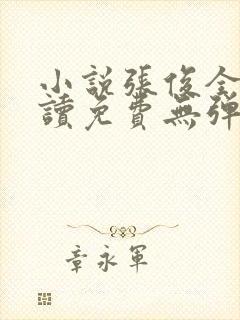 小說張俊全
讀免費無彈
章永軍